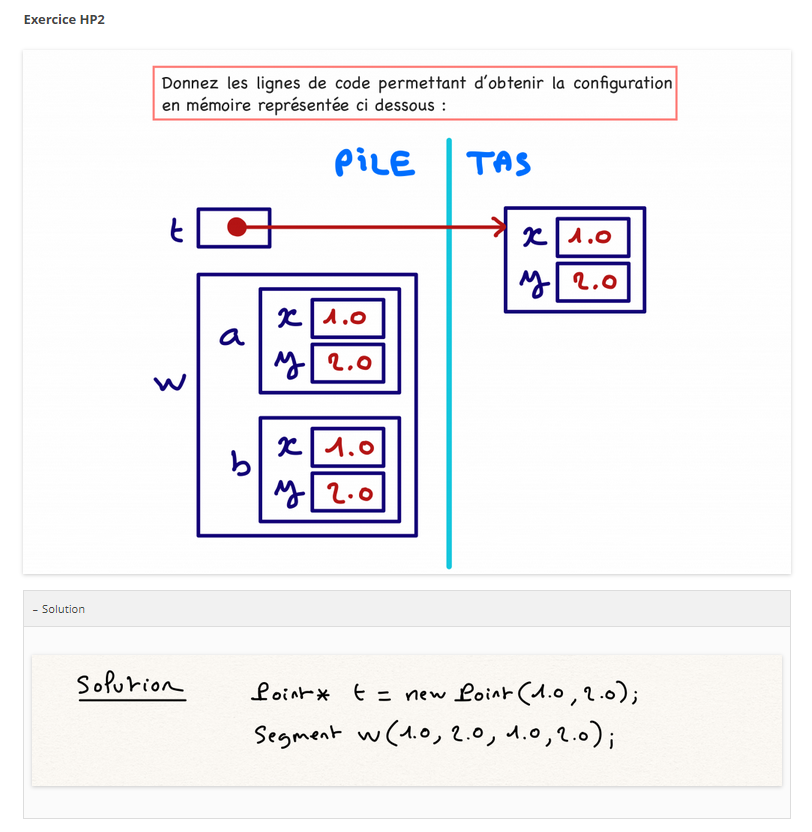 Exercice HP2
Donnez les lignes de code permettant d'obtenir la configuration
en mémoire représentée ci dessous :
PiLE TAS
t
x 1.0
y 2.0
w
a
x 1.0
y 2.0
b
x 1.0
y 2.0
– Solution
Solution
Point* t = new Point(1.0, 2.0);
Segment w(1.0, 2.0, 1.0, 2.0);